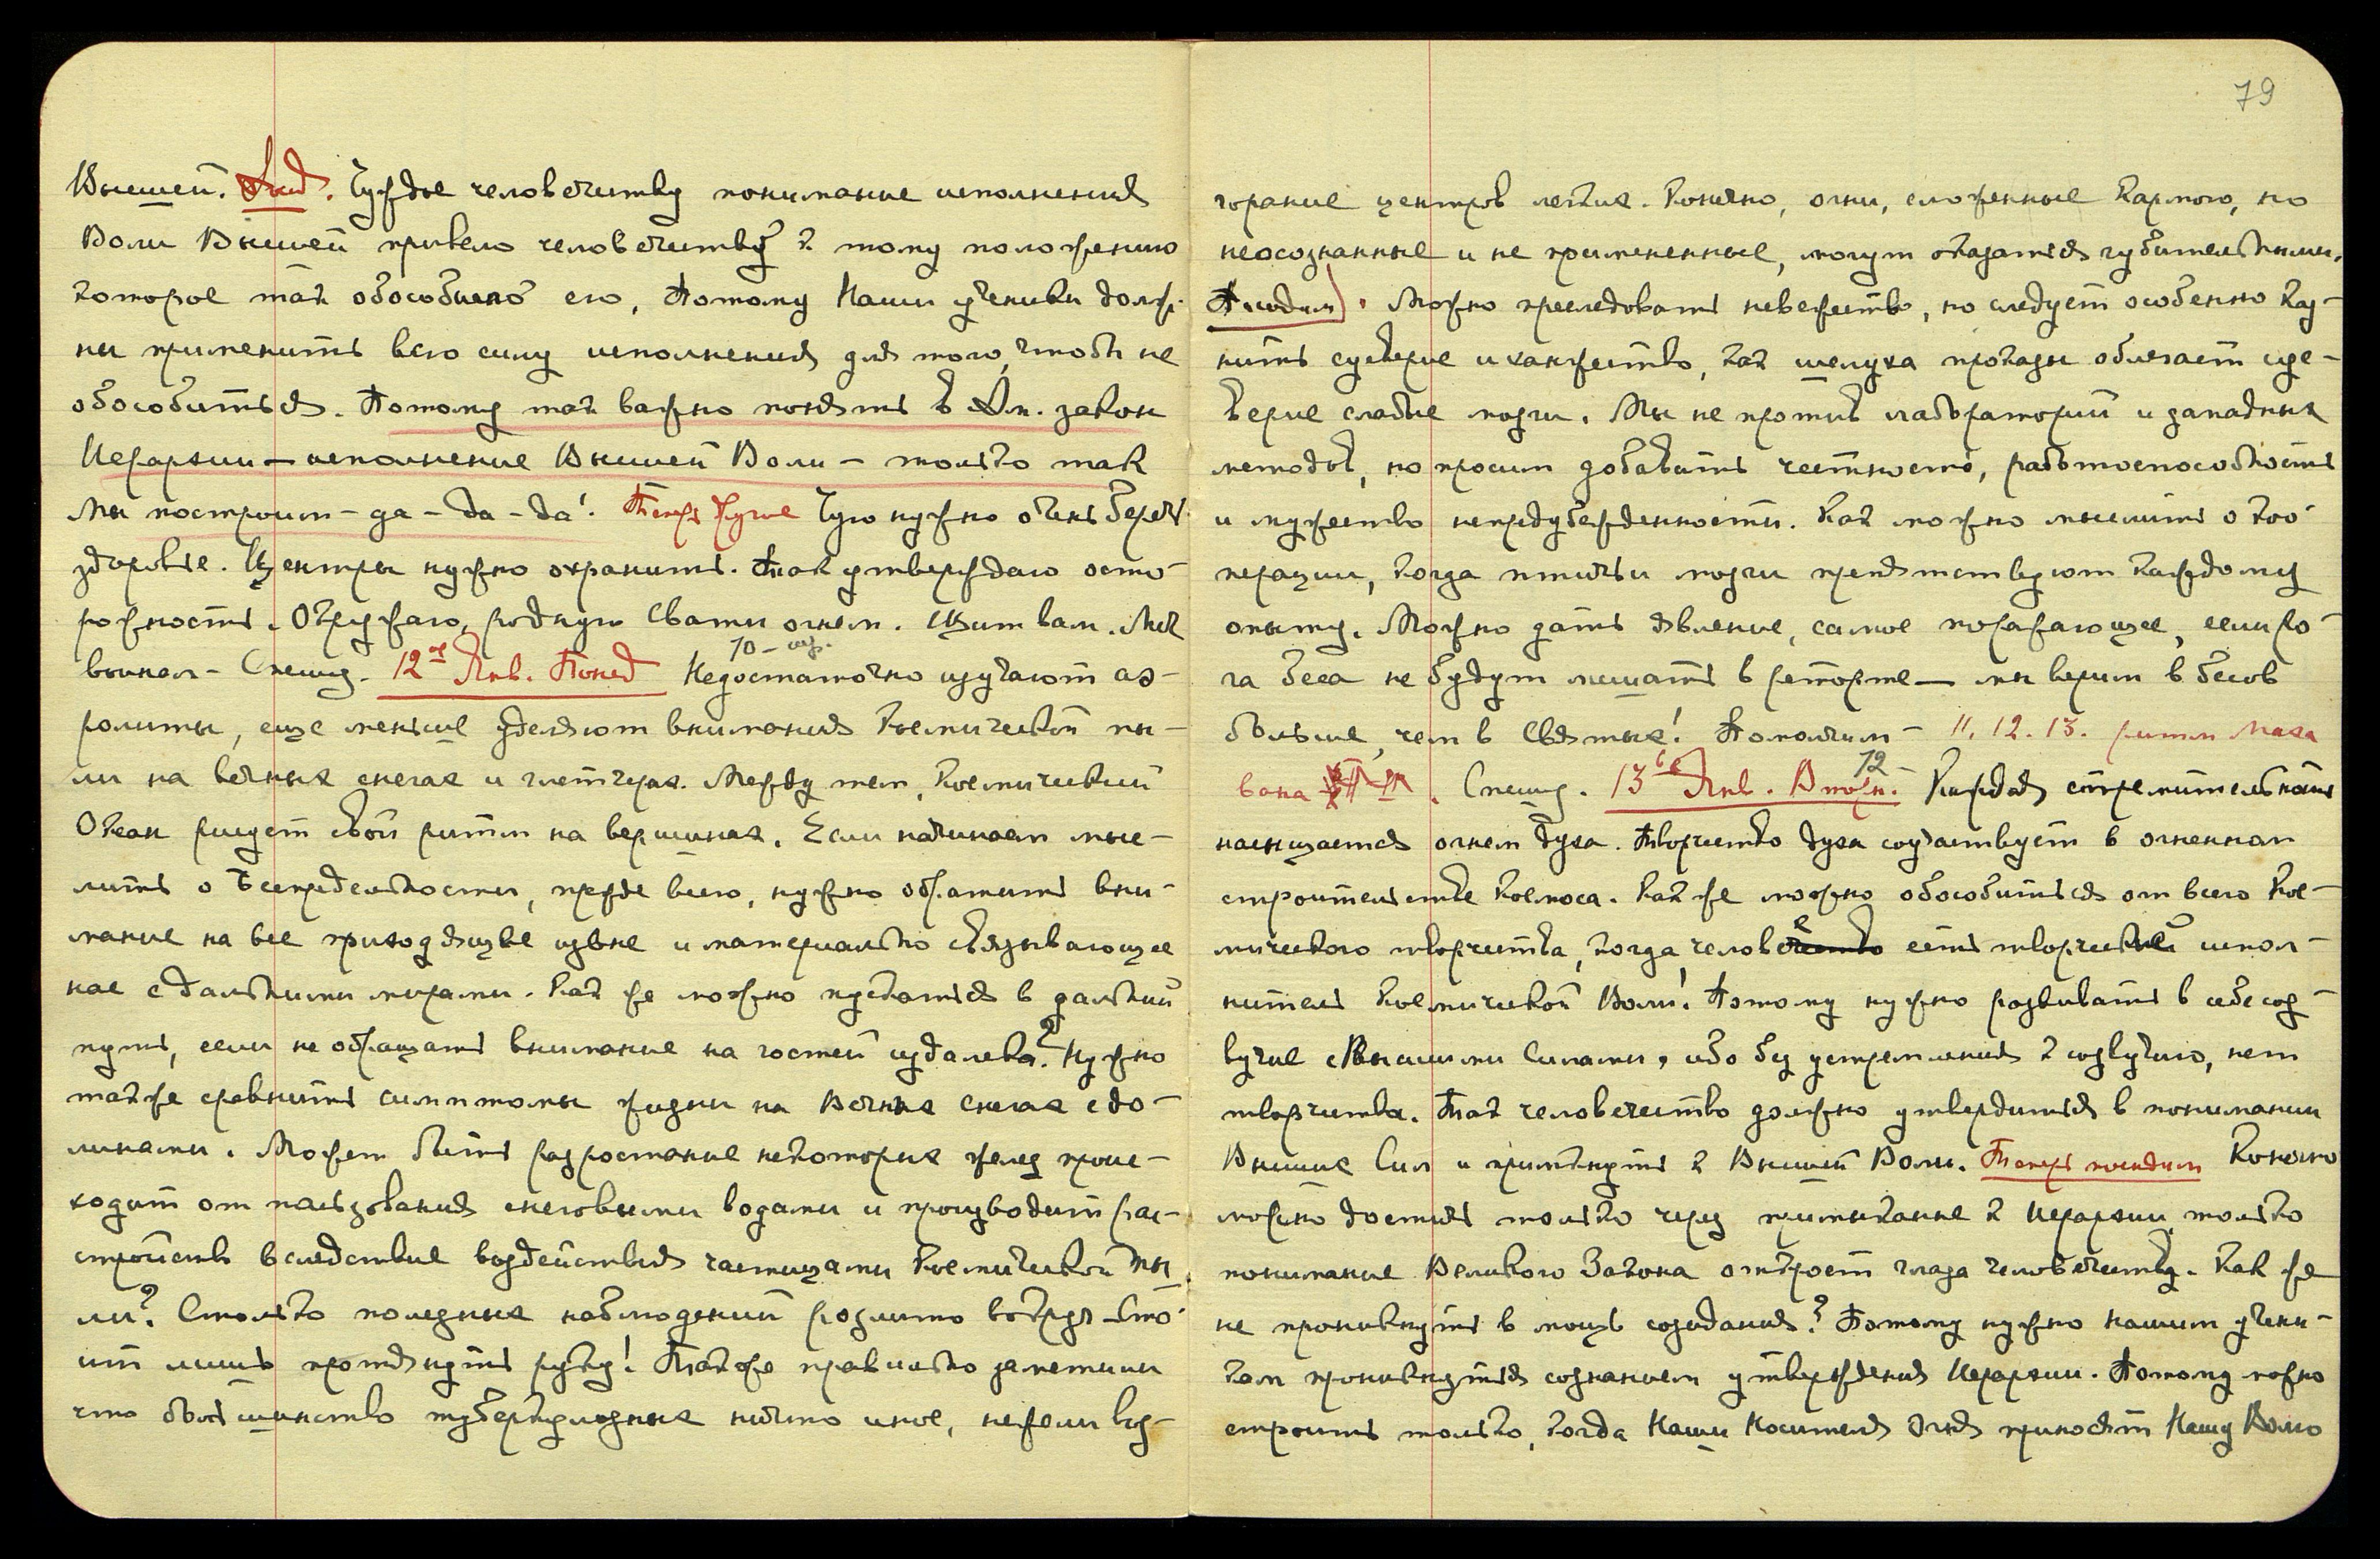 Высшей. Чуждое человечеству понимание исполнения
Воли Высшей привело человечество к тому положению
которое так обособило его, Потому Наши ученики долж-
ны применить всю силу исполнения для того, чтобы не
обособиться. Потому так важно понять в закон
Иерархии – исполнение Высшей Воли – только так
Мы построим – да – да – да! Теперь другое Чую нужно очень беречь
здоровье. Центры нужно охранить. Так утверждаю осто-
рожность. Окружаю, родную Свати огнем. Щит вам. Меч
врагам – Спешу. 12ое Янв. Понед 10 – Недостаточно изучают аэ-
ролиты, еще меньше уделяют внимания Космической пы-
ли на вечных снегах и глетчерах. Между тем, Космический
Океан рисует свой ритм на вершинах. Если начинаем мыс-
лить о Беспредельности, прежде всего, нужно обратить вни-
мание на все приходящее извне и материально связывающее
нас с дальними мирами. Как же можно пускаться в дальний
путь, если не обращать внимание на гостей издалека? Нужно
также сравнить симптомы жизни на Вечных снегах с до-
линами. Может быть разростание некоторых желез проис-
ходит от пользования снеговыми водами и производит рас-
стройств вследствие воздействия частицами Космической пы-
ли? Столько полезных наблюдений разлито вокруг – сто-
ит лишь протянуть руку! Также правильно заметили
что большинство туберкулозных ничто иное, нежели воз-
79
горание центров легких. Конечно, огни, сложенные Кармою, но
неосознанные и не примененные, могут оказаться губительными.
Походим. Можно преследовать невежество, но следует особенно каз-
нить суеверие и ханжество, как шелуха проказы облегает суе-
верие слабые мозги. Мы не против лабораторий и западных
методов, но просим добавить честность, работоспособность
и мужество непредубежденности. Как можно мыслить о коо-
перации, когда птичьи мозги препятствуют каждому
опыту. Можно дать явление, самое поражающее, если ро-
га беса не будут мешать в реторте – мы верим в бесов
больше, чем в Святых! Помолчим – 11. 12. 13. ритм Маха
вана. Спешу. 13ое Янв. Вторн. 12 – Каждая стремительность
насыщается огнем духа. Творчество духа соучаствует в огненном
строительстве Космоса. Как же можно обособиться от всего Кос-
мического творчества, когда человек есть творческий испол-
нитель Космической Воли! Потому нужно развивать в себе соз-
вучие с Высшими Силами, ибо без устремления к созвучию, нет
творчества. Так человечество должно утвердиться в понимании
Высших Сил и примкнуть к Высшей Воли. Теперь посидим Конечно
можно достичь только через примыкание к Иерархии, только
понимание Великого Закона откроет глаза человечеству. Как же
не проникнуть в мощь созидания? Потому нужно нашим учени-
кам проникнуться сознанием утверждения Иерархии. Потому можно
строить только, когда Наши Носители Огня приносят Нашу Волю